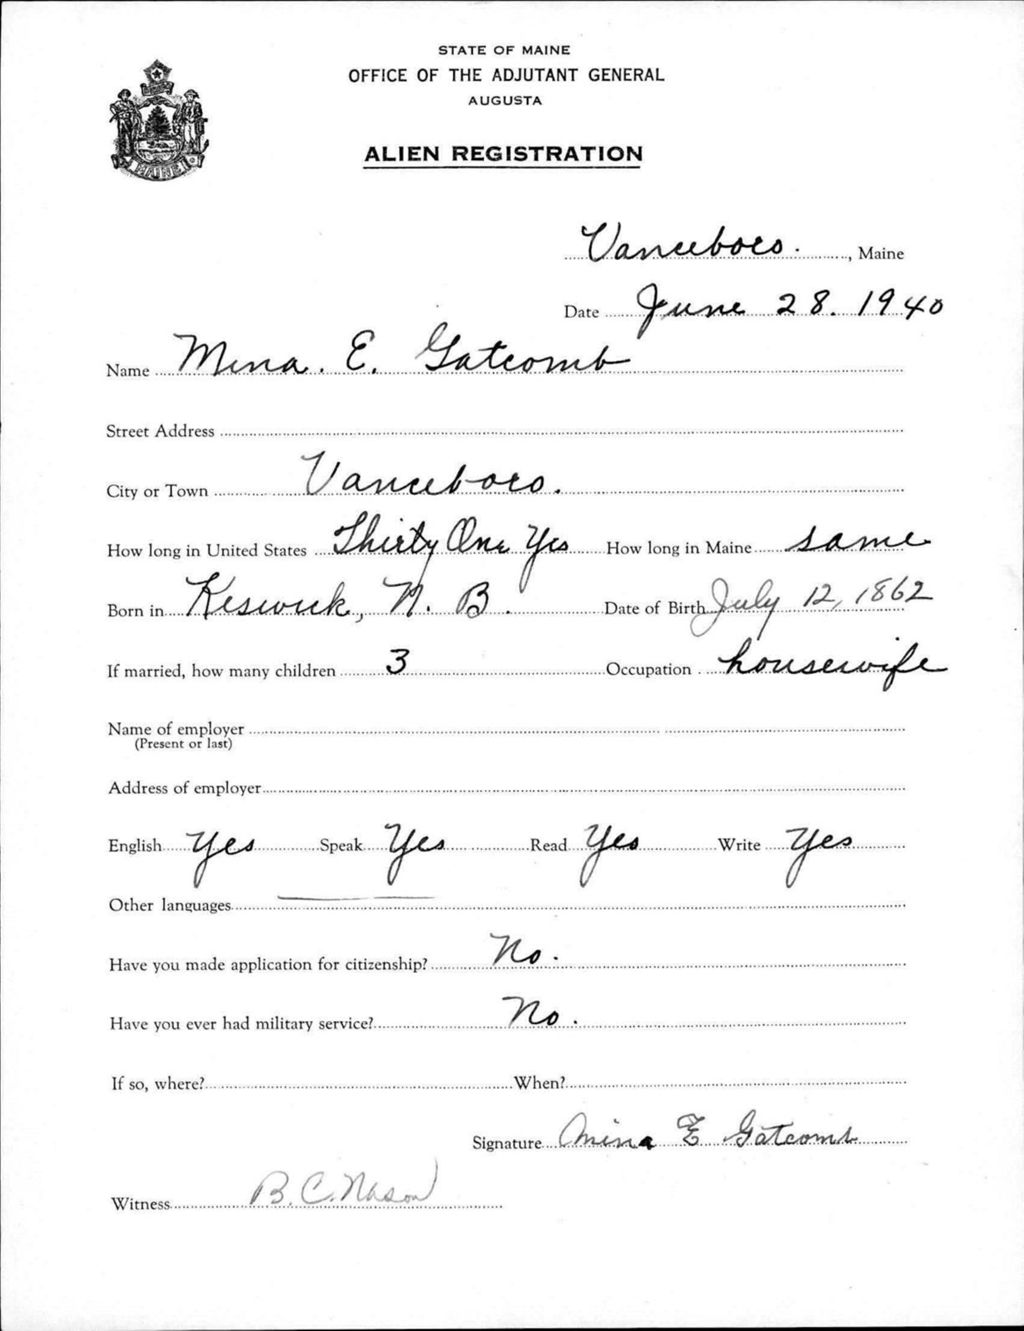 STATE OF MAINE
OFFICE OF THE ADJUTANT GENERAL
AUGUSTA
ALIEN REGISTRATION
MAINE
Vanceboro. , Maine
Date June 28. 1940
Name Mina. E. Gatcomb
Street Address
City or Town Vanceboro.
How long in United States Thirty One Yrs How long in Maine same
Born in Keswick, N. B. Date of Birth July 12, 1862
If married, how many children 3 Occupation housewife
Name of employer
(Present or last)
Address of employer
English Yes Speak Yes Read Yes Write Yes
Other languages
Have you made application for citizenship? No.
Have you ever had military service? No.
If so, where? When?
Signature Mina E Gatcomb
Witness B. C. Nason